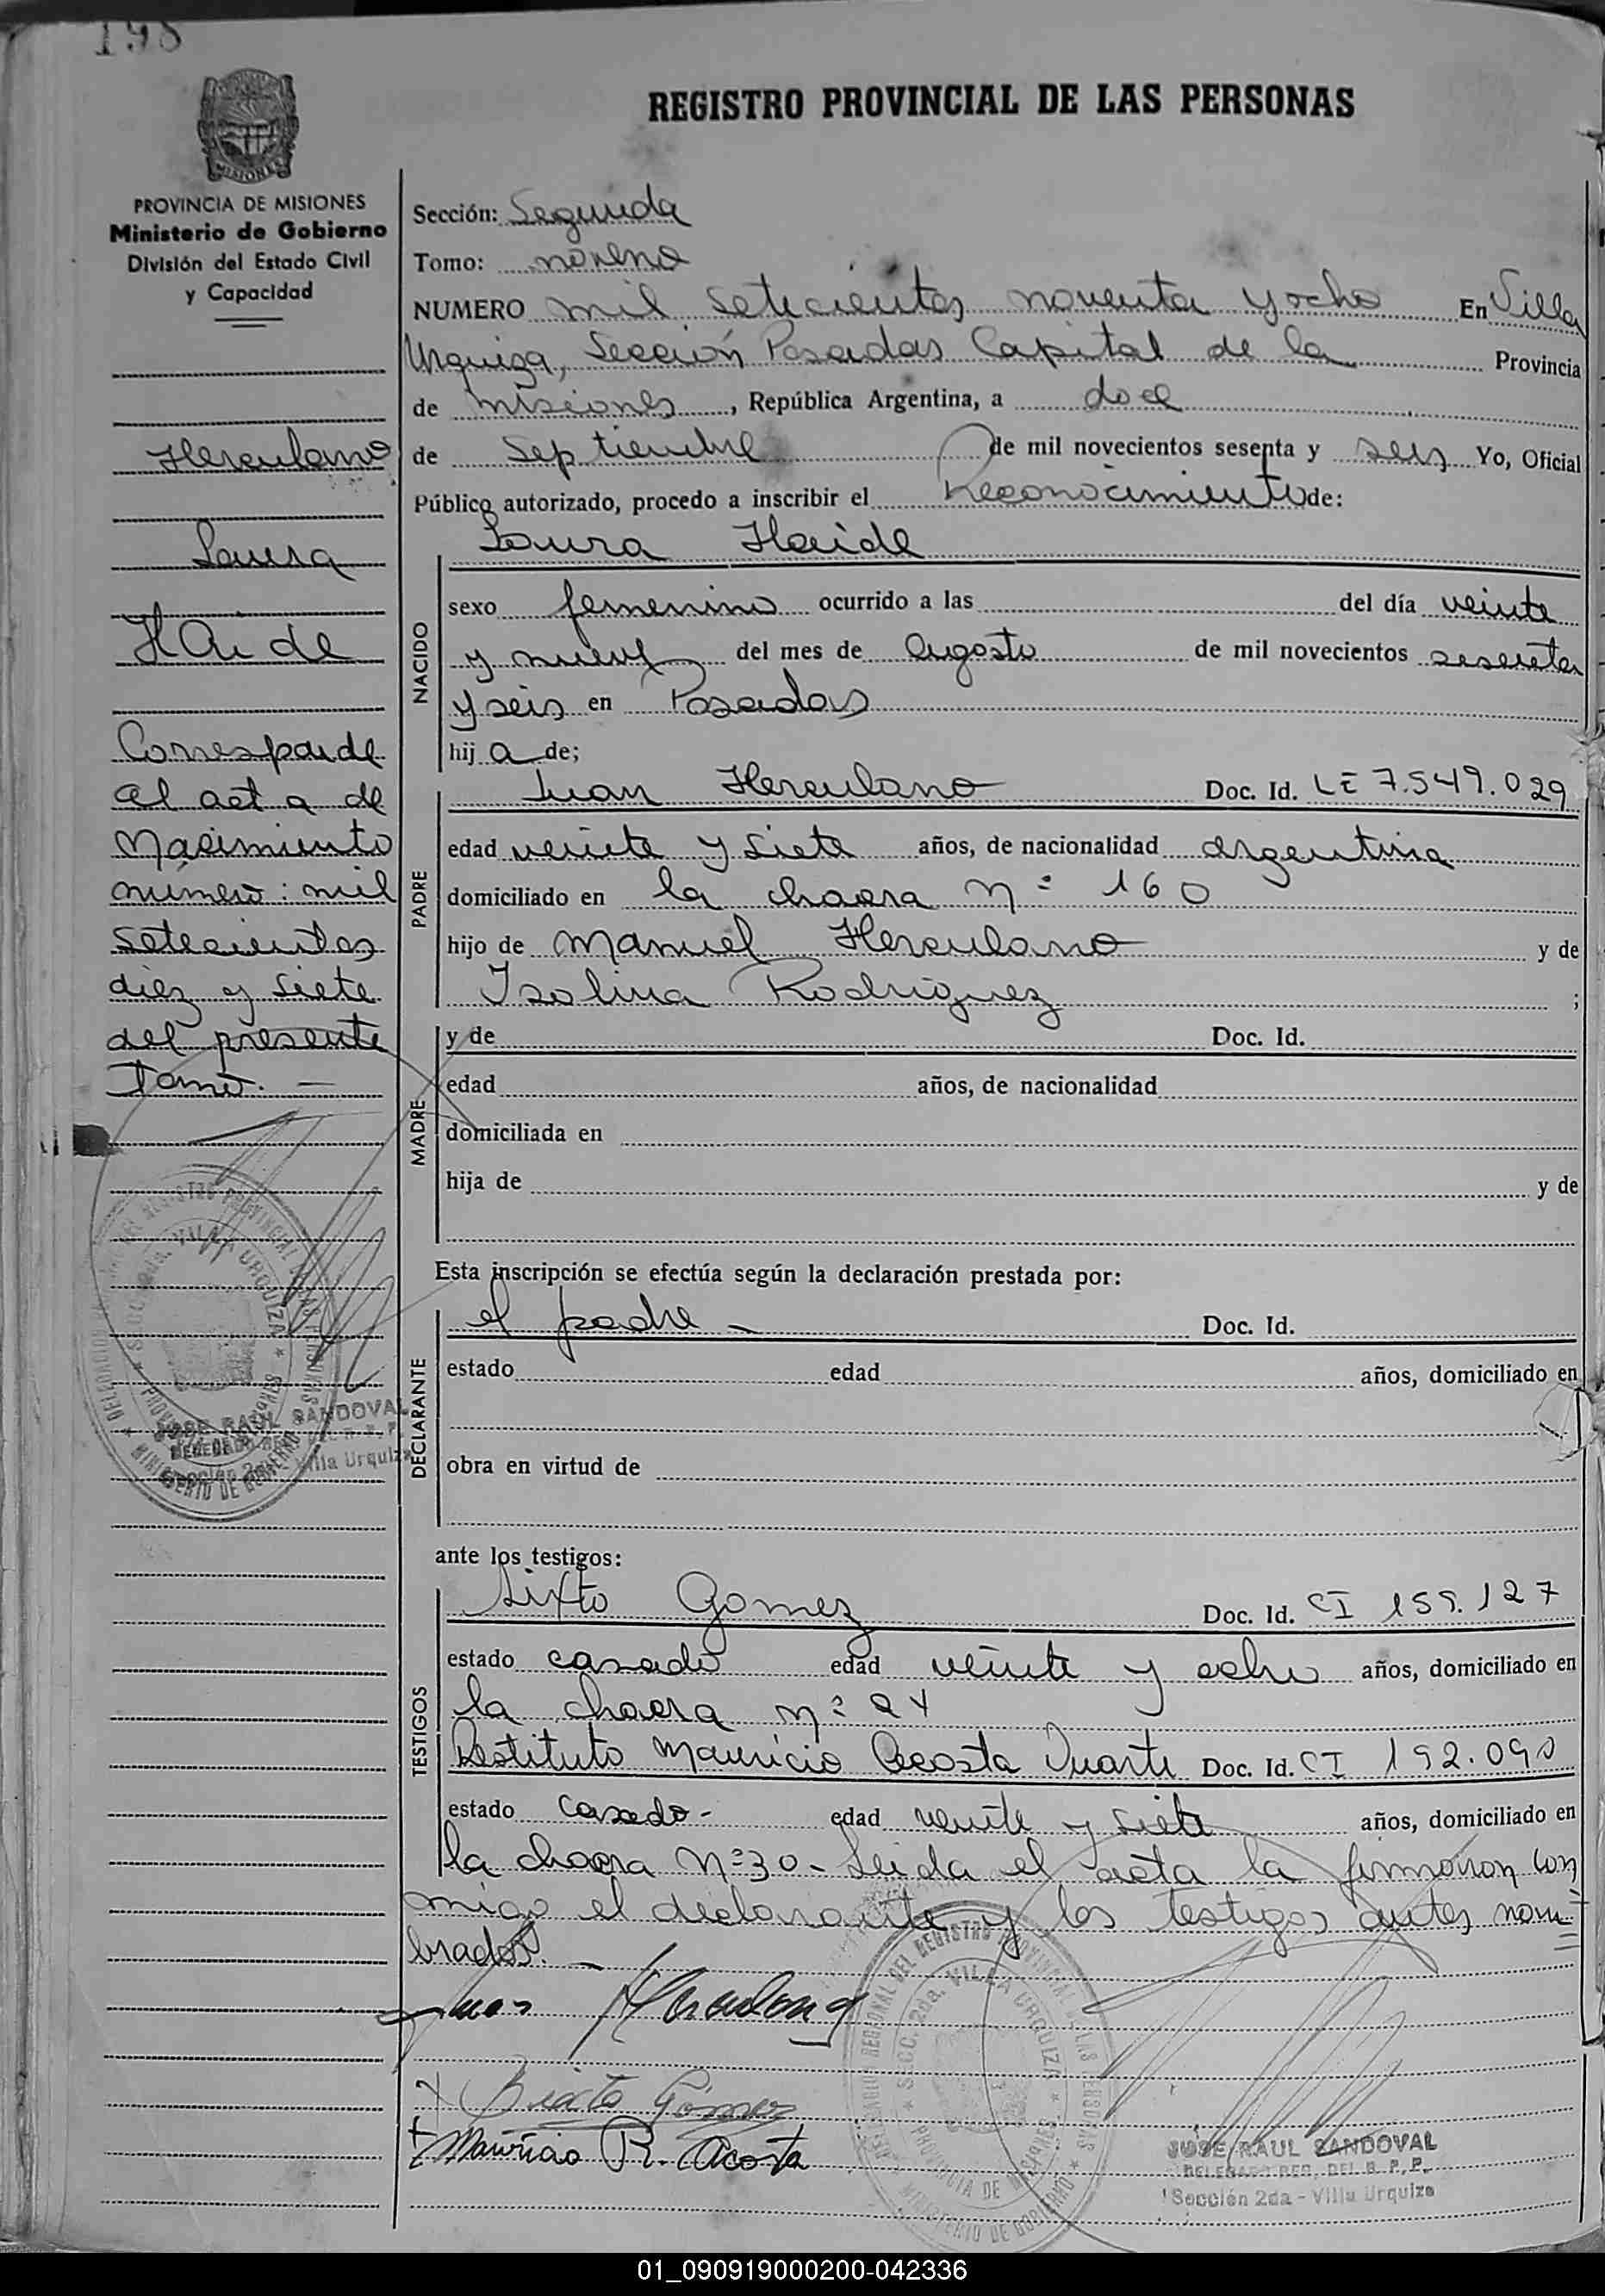 198
REGISTRO PROVINCIAL DE LAS PERSONAS
MISIONES
PROVINCIA DE MISIONES
Ministerio de Gobierno
División del Estado Civil
y Capacidad
Herculano
Laura
Haide
Corresponde
al acta de
Nacimiento
número: mil
setecientos
diez y siete
del presente
Tomo. —
JOSE RAUL SANDOVAL
Villa Urquiza
Sección: Segunda
Tomo: noveno
NUMERO mil setecientos noventa y ocho En Villa
Urquiza, Sección Posadas Capital de la Provincia
de misiones, República Argentina, a doce
de Septiembre de mil novecientos sesenta y seis Yo, Oficial
Público autorizado, procedo a inscribir el Reconocimiento de:
Laura Haide
NACIDO
sexo femenino ocurrido a las del día veinte
y nueve del mes de Augosto de mil novecientos sesenta
y seis en Posadas
hij a de;
PADRE
Juan Herculano Doc. Id. LE 7.549.029
edad veinte y siete años, de nacionalidad argentina
domiciliado en la chacra nº 160
hijo de Manuel Herculano y de
Isolina Rodriguez ;
MADRE
y de Doc. Id.
edad años, de nacionalidad
domiciliada en
hija de y de
Esta inscripción se efectúa según la declaración prestada por:
DECLARANTE
el padre - Doc. Id.
estado edad años, domiciliado en
obra en virtud de
ante los testigos:
TESTIGOS
Sixto Gomez Doc. Id. CI 159.127
estado casado edad veinte y ocho años, domiciliado en
la chacra nº 24
Restituto Mauricio Acosta Duarte Doc. Id. CI 192.090
estado casado- edad veinte y siete años, domiciliado en
la chacra Nº 30- Leida el acta la firmaron con
migo el declarante y los testigos antes nom=
brados. —
Juan Herculano
Sixto Gómez
Mauricio R. Acosta
DELEGADO REGIONAL DEL REGISTRO PROVINCIAL DE LAS PERSONAS
SECC. 2da. VILLA URQUIZA
PROVINCIA DE MISIONES
MINISTERIO DE GOBIERNO
JOSE RAUL SANDOVAL
DELEGADO REG. DEL R. P. P.
Sección 2da - Villa Urquiza
01_090919000200-042336